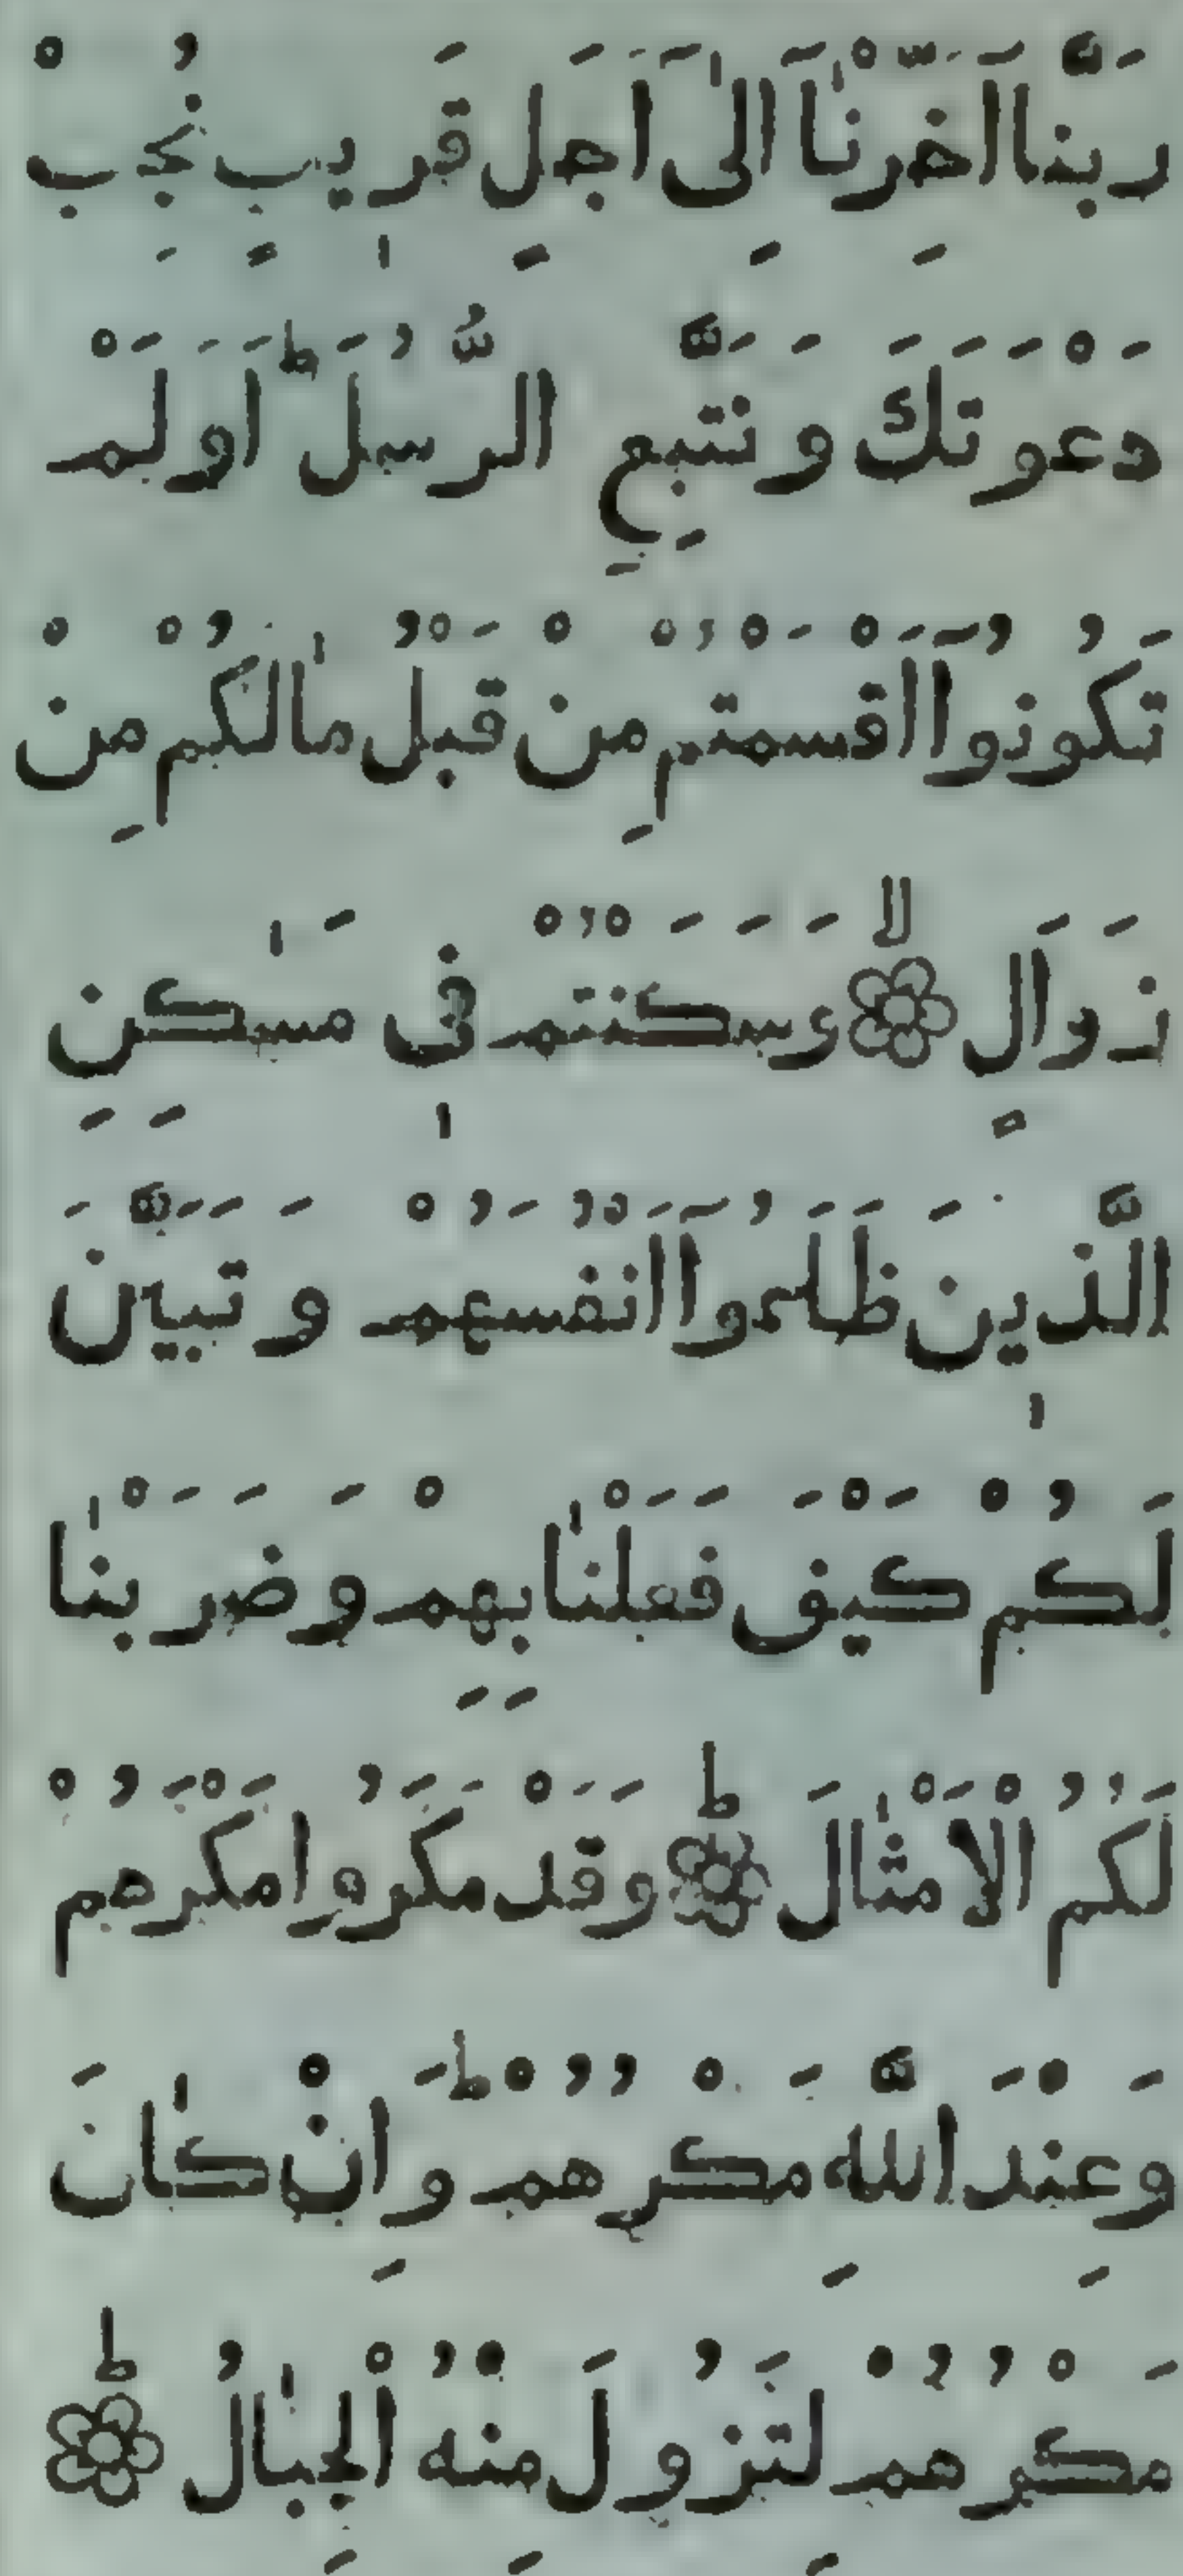 رَبَّنَاۤ اَخِّرْنَاۤ اِلٰۤى اَجَلٍ قَرِیْبٍ نُّجِبْ
دَعْوَتَكَ وَنَتَّبِعِ الرُّسُلَ ؕ اَوَلَمْ
تَكُوْنُوْۤا اَقْسَمْتُمْ مِنْ قَبْلُ مٰالَكُمْ مِنْ
زَوَالٍ ۙ وَسَكَنْتُمْ فِی مَسٰكِنِ
الَّذِینَ ظَلَمُوْۤا اَنْفُسَهُمْ وَتَبَیَّنَ
لَكُمْ كَیْفَ فَعَلْنٰا بِهِمْ وَضَرَبْنٰا
لَكُمُ الْاَمْثٰالَ ؕ وَقَدْ مَكَرُوا مَكْرَهُمْ
وَعِنْدَ اللّٰهِ مَكْرُهُمْ ؕ وَاِنْ كٰانَ
مَكْرُهُمْ لِتَزُولَ مِنْهُ الْجِبٰالُ ؕ